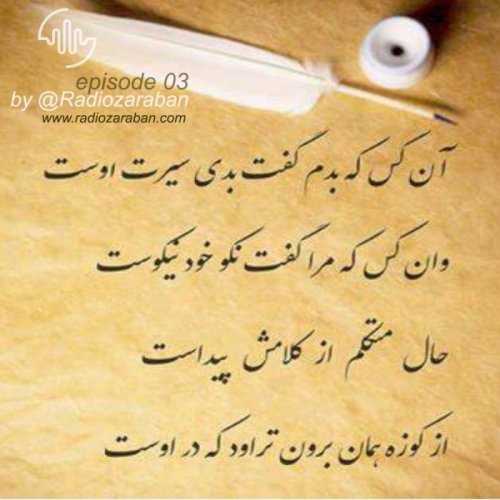 episode 03
by @Radiozaraban
www.radiozaraban.com
آن کس که بدم گفت بدی سیرت اوست
وان کس که مرا گفت نکو خود نیکوست
حال متکلم از کلامش پیداست
از کوزه همان برون تراود که در اوست